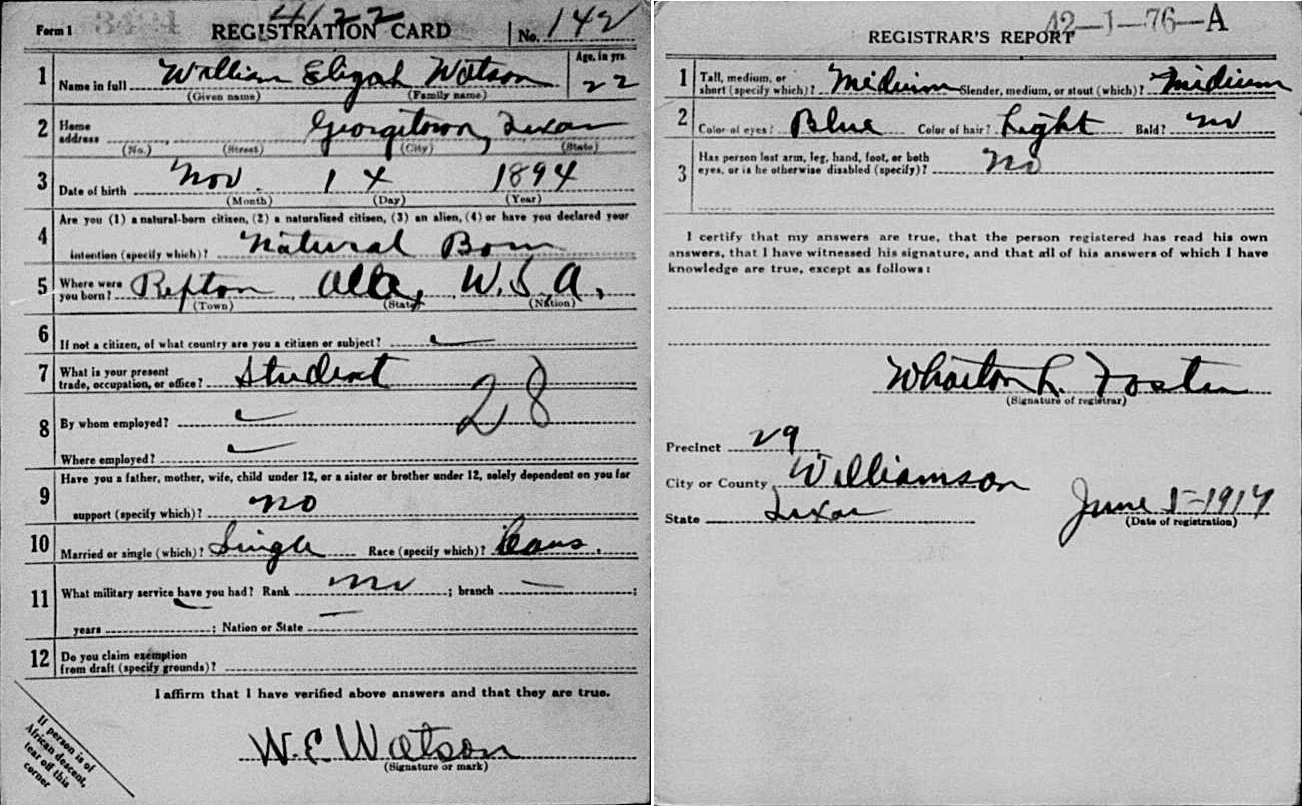 4122
Form 1 3421 REGISTRATION CARD No. 142
1 Name in full William Elizah Watson Age, in yrs. 22
(Given name) (Family name)
2 Home address Georgetown, Texas
(No.) (Street) (City) (State)
3 Date of birth Nov. 14 1894
(Month) (Day) (Year)
Are you (1) a natural-born citizen, (2) a naturalized citizen, (3) an alien, (4) or have you declared your
4 intention (specify which)? Natural Born
5 Where were you born? Repton Alla, U.S.A.
(Town) (State) (Nation)
6 If not a citizen, of what country are you a citizen or subject?
7 What is your present
trade, occupation, or office? Student
28
8 By whom employed?
Where employed?
Have you a father, mother, wife, child under 12, or a sister or brother under 12, solely dependent on you for
9 support (specify which)? no
10 Married or single (which)? Single Race (specify which)? Caus.
11 What military service have you had? Rank no ; branch — ;
years ; Nation or State —
12 Do you claim exemption
from draft (specify grounds)?
I affirm that I have verified above answers and that they are true.
W. E. Watson
(Signature or mark)
If person is of
African descent,
tear off this
corner
42-1-76-A
REGISTRAR'S REPORT
1 Tall, medium, or
short (specify which)? Medium Slender, medium, or stout (which)? Medium
2 Color of eyes? Blue Color of hair? Light Bald? no
3 Has person lost arm, leg, hand, foot, or both
eyes, or is he otherwise disabled (specify)? no
I certify that my answers are true, that the person registered has read his own
answers, that I have witnessed his signature, and that all of his answers of which I have
knowledge are true, except as follows:
Wharton L. Foster
(Signature of registrar)
Precinct 29
City or County Williamson
State Texas
June 5-1917
(Date of registration)